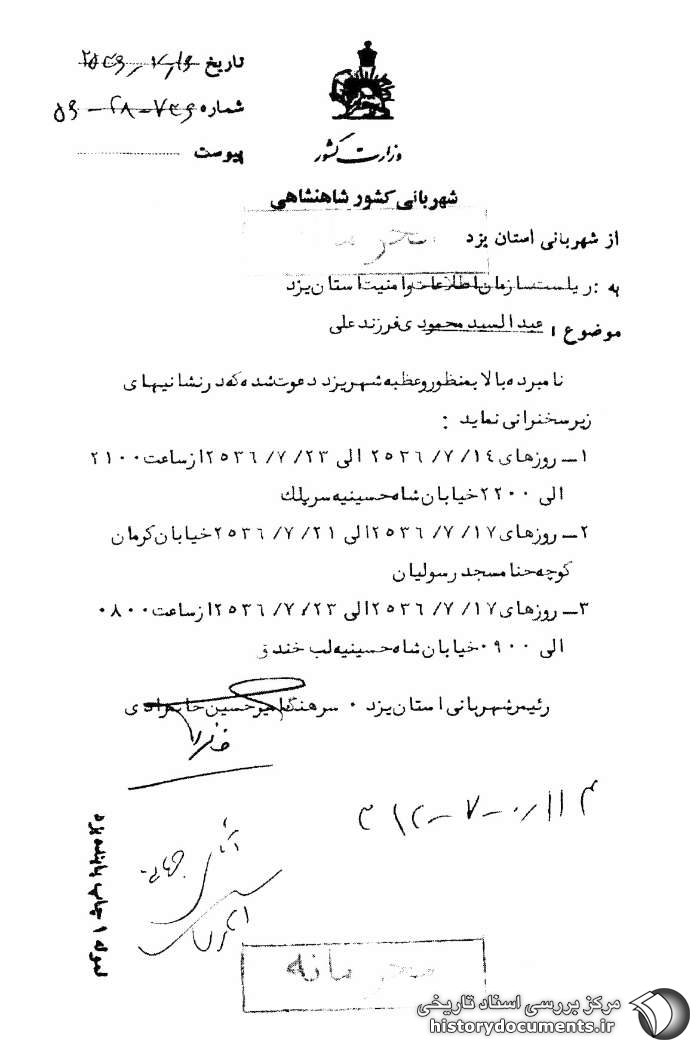 تاریخ
شماره
پیوست
وزارت کشور
شهربانی کشور شاهنشاهی
محرمانه
از شهربانی استان یزد
به : ریاست سازمان اطلاعات وامنیت استان یزد
موضوع : عبدالسید محمودی فرزند علی
نامبرده بالا بمنظور وعظ به شهر یزد دعوت شده که در نشانیهای
زیر سخنرانی نماید :
۱ــ روزهای ۲۵۳٦/۷/۱٤ الی ۲۵۳٦/۷/۲۳ از ساعت ۲۱۰۰
الی ۲۲۰۰ خیابان شاه حسینیه سرپلك
۲ــ روزهای ۲۵۳٦/۷/۱۷ الی ۲۵۳٦/۷/۲۱ خیابان کرمان
کوچه حنا مسجد رسولیان
۳ــ روزهای ۲۵۳٦/۷/۱۷ الی ۲۵۳٦/۷/۲۳ از ساعت ۰۸۰۰
الی ۰۹۰۰ خیابان شاه حسینیه لب خندق
رئیس شهربانی استان یزد ۰ سرهنگ امیرحسین
محرمانه
مرکز بررسی اسناد تاریخی
historydocuments.ir